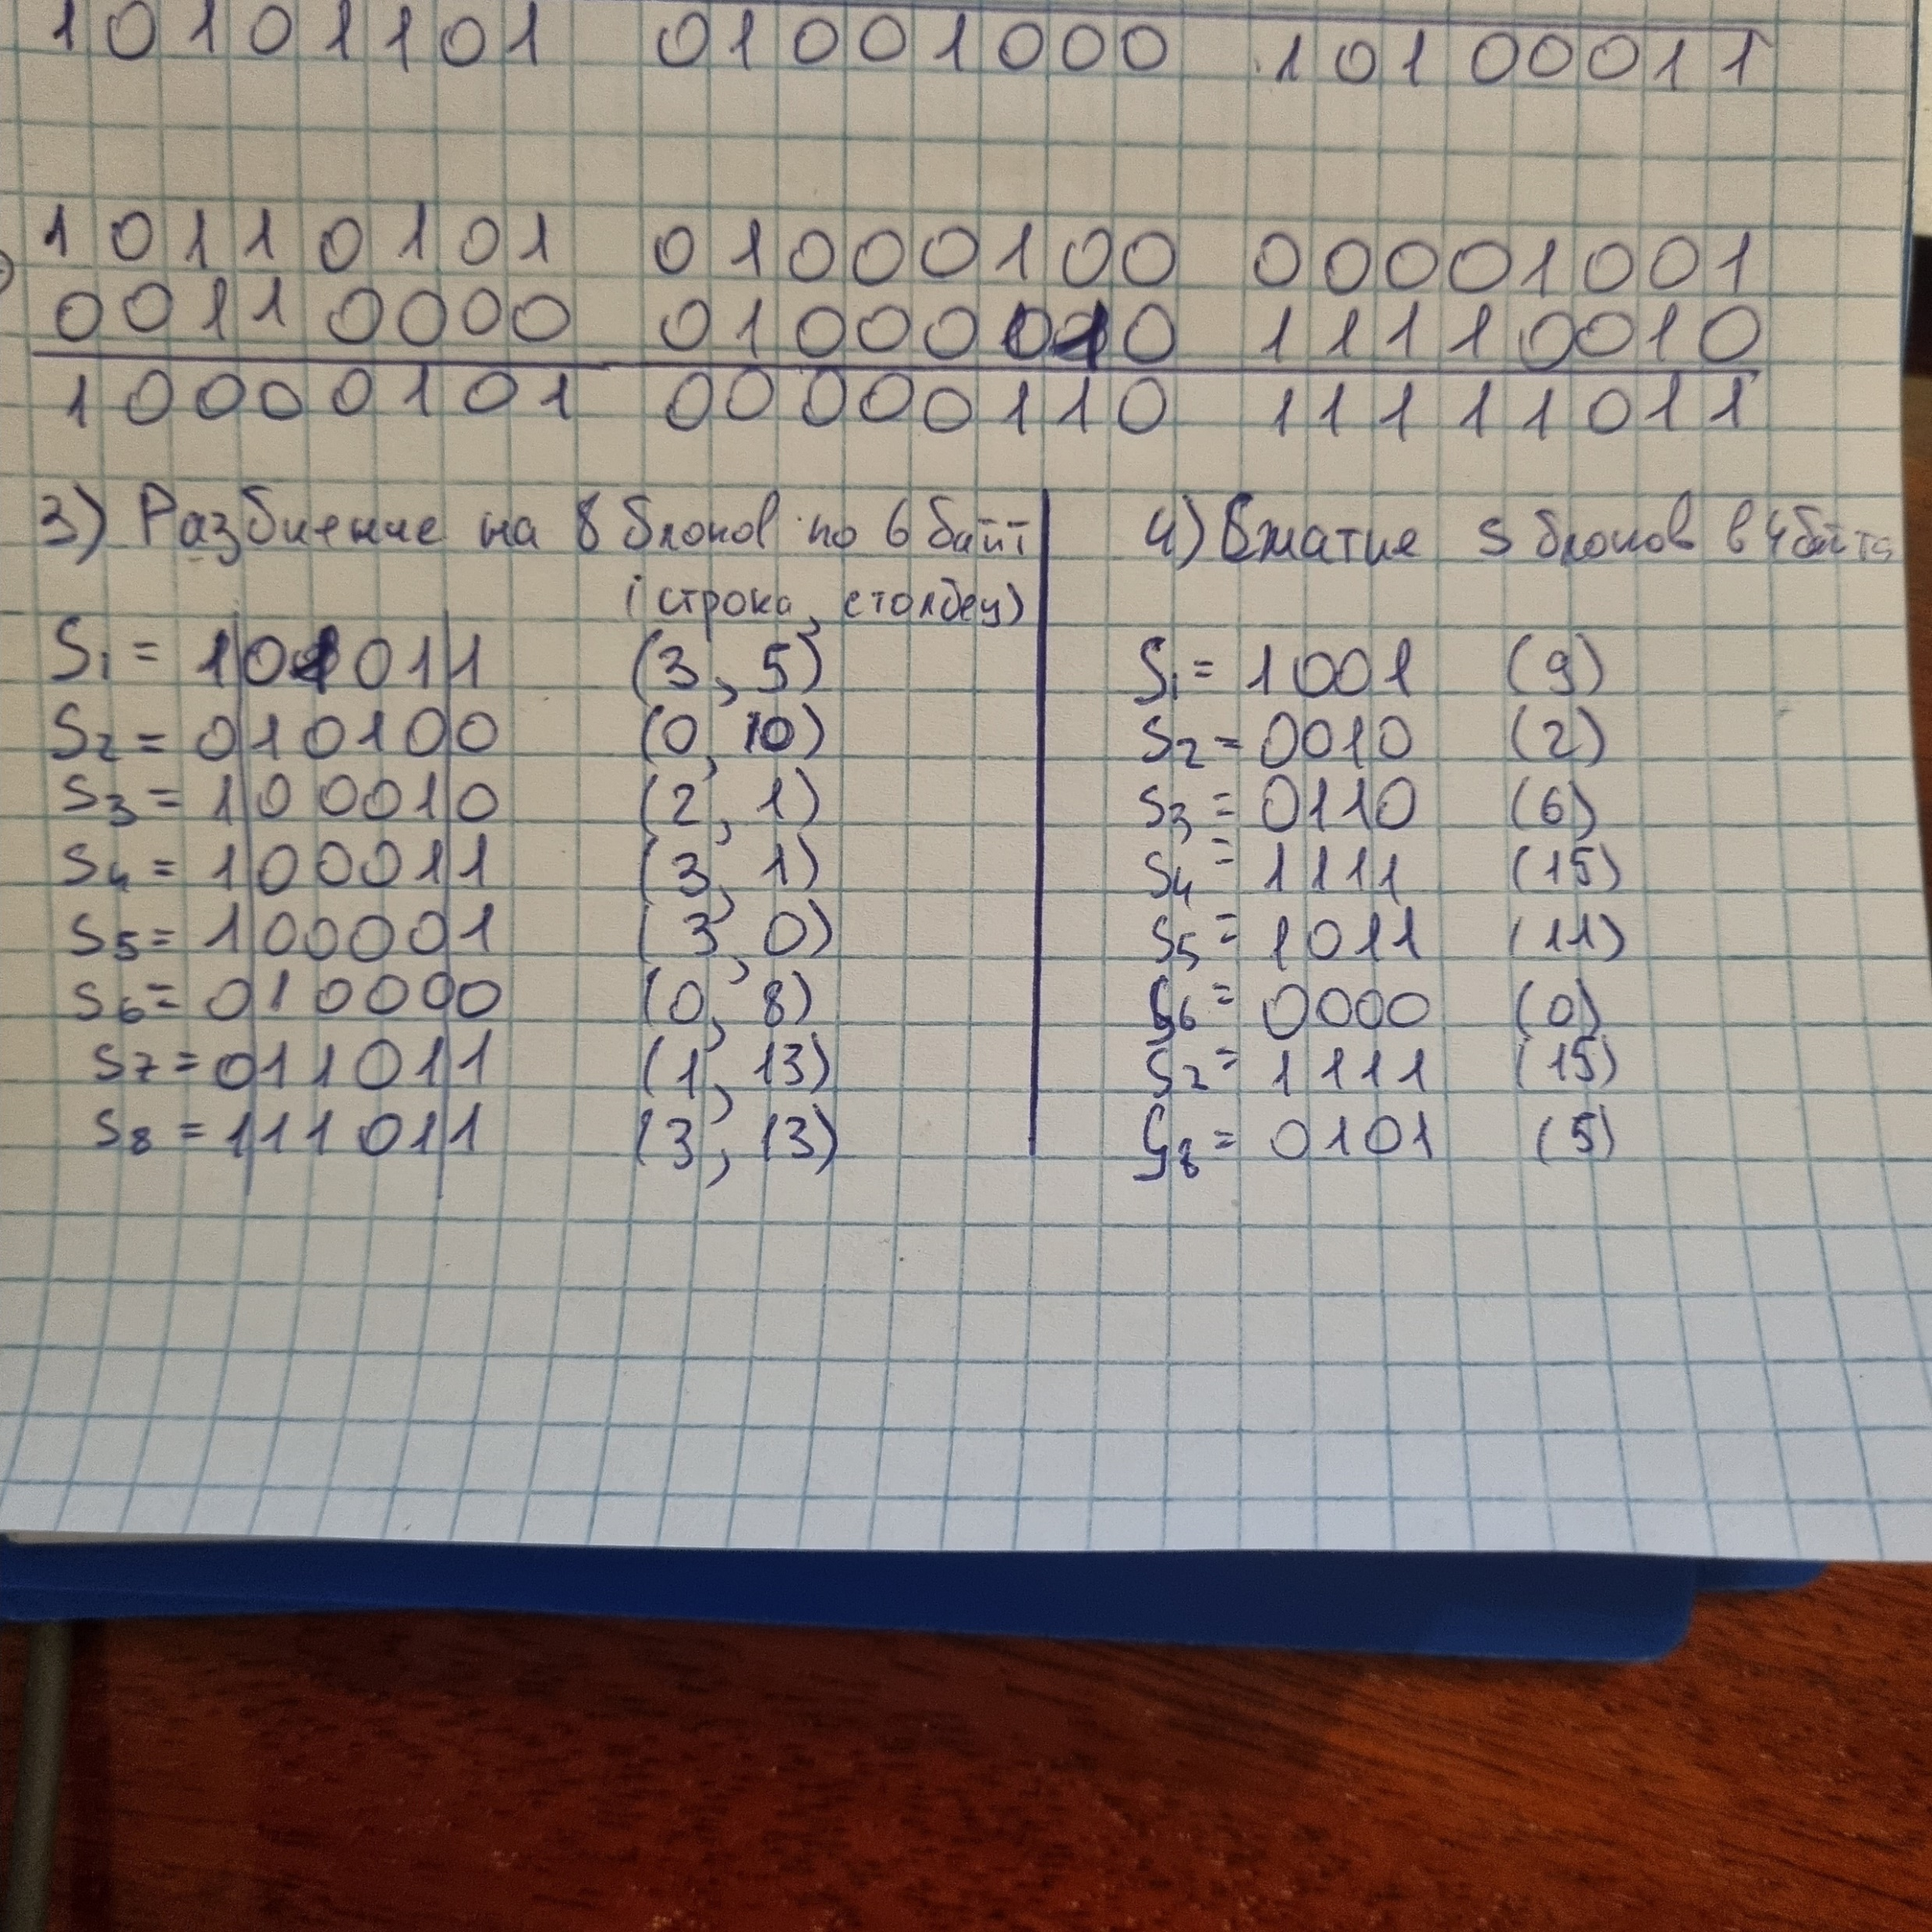 10101101 01001000 10100011
10110101 01000100 00001001
00110000 01000010 11110010
10000101 00000110 11111011
3) Разбиение на 8 блоков по 6 байт
(строка, столбец)
S1 = 101011 (3, 5)
S2 = 010100 (0, 10)
S3 = 100010 (2, 1)
S4 = 100011 (3, 1)
S5 = 100001 (3, 0)
S6 = 010000 (0, 8)
S7 = 011011 (1, 13)
S8 = 111011 (3, 13)
4) Сжатие S блоков в 4 байта
S1 = 1001 (9)
S2 = 0010 (2)
S3 = 0110 (6)
S4 = 1111 (15)
S5 = 1011 (11)
S6 = 0000 (0)
S7 = 1111 (15)
S8 = 0101 (5)